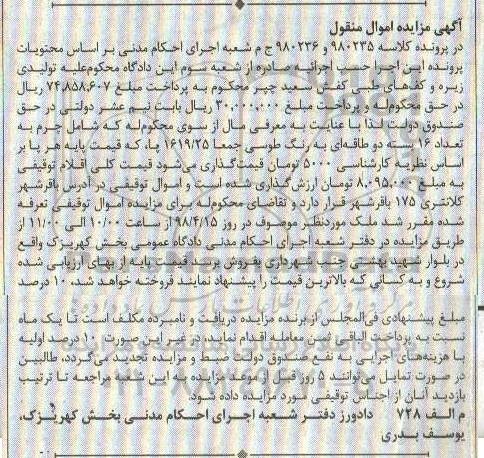 آگهی مزایده اموال منقول
در پرونده کلاسه ۹۸۰۲۳۵ و ۹۸۰۲۳۶ ج م شعبه اجرای احکام مدنی بر اساس محتویات
پرونده این اجرا حسب اجرائیه صادره از شعبه سوم این دادگاه محکوم‌علیه تولیدی
زیره و کف‌های طبی کفش سعید چیر محکوم به پرداخت مبلغ ۷۴,۸۵۸,۶۰۷ ریال
در حق محکوم‌له و پرداخت مبلغ ۳۰,۰۰۰,۰۰۰ ریال بابت نیم عشر دولتی در حق
صندوق دولت لذا با عنایت به معرفی مال از سوی محکوم‌له که شامل چرم به
تعداد ۱۶ بسته دو طاقه‌ای به رنگ طوسی جمعا ۱۶۱۹/۲۵ پا، که قیمت پایه هر پا بر
اساس نظریه کارشناسی ۵۰۰۰ تومان قیمت‌گذاری می‌شود قیمت کلی اقلام توقیفی
به مبلغ ۸,۰۹۵,۰۰۰ تومان ارزش‌گذاری شده است و اموال توقیفی در آدرس باقرشهر
کلانتری ۱۷۵ باقرشهر قرار دارد و تقاضای محکوم‌له برای مزایده اموال توقیفی تعرفه
شده مقرر شد ملک موردنظر موصوف در روز ۹۸/۴/۱۵ از ساعت ۱۰/۰۰ الی ۱۱/۰۰ از
طریق مزایده در دفتر شعبه اجرای احکام مدنی دادگاه عمومی بخش کهریزک واقع
در بلوار شهید بهشتی جنب شهرداری بفروش برسد قیمت پایه از بهای ارزیابی شده
شروع و به کسانی که بالاترین قیمت را پیشنهاد نمایند فروخته خواهد شد، ۱۰ درصد
مبلغ پیشنهادی فی‌المجلس از برنده مزایده دریافت و نامبرده مکلف است تا یک ماه
نسبت به پرداخت الباقی ثمن معامله اقدام نماید، در غیر این صورت ۱۰ درصد اولیه
با هزینه‌های اجرایی به نفع صندوق دولت ضبط و مزایده تجدید می‌گردد، طالبین
در صورت تمایل می‌توانند ۵ روز قبل از موعد مزایده به این شعبه مراجعه تا ترتیب
بازدید آنان از اجناس توقیفی مورد مزایده داده شود.
م الف ۷۴۸ دادورز دفتر شعبه اجرای احکام مدنی بخش کهریزک،
یوسف بدری